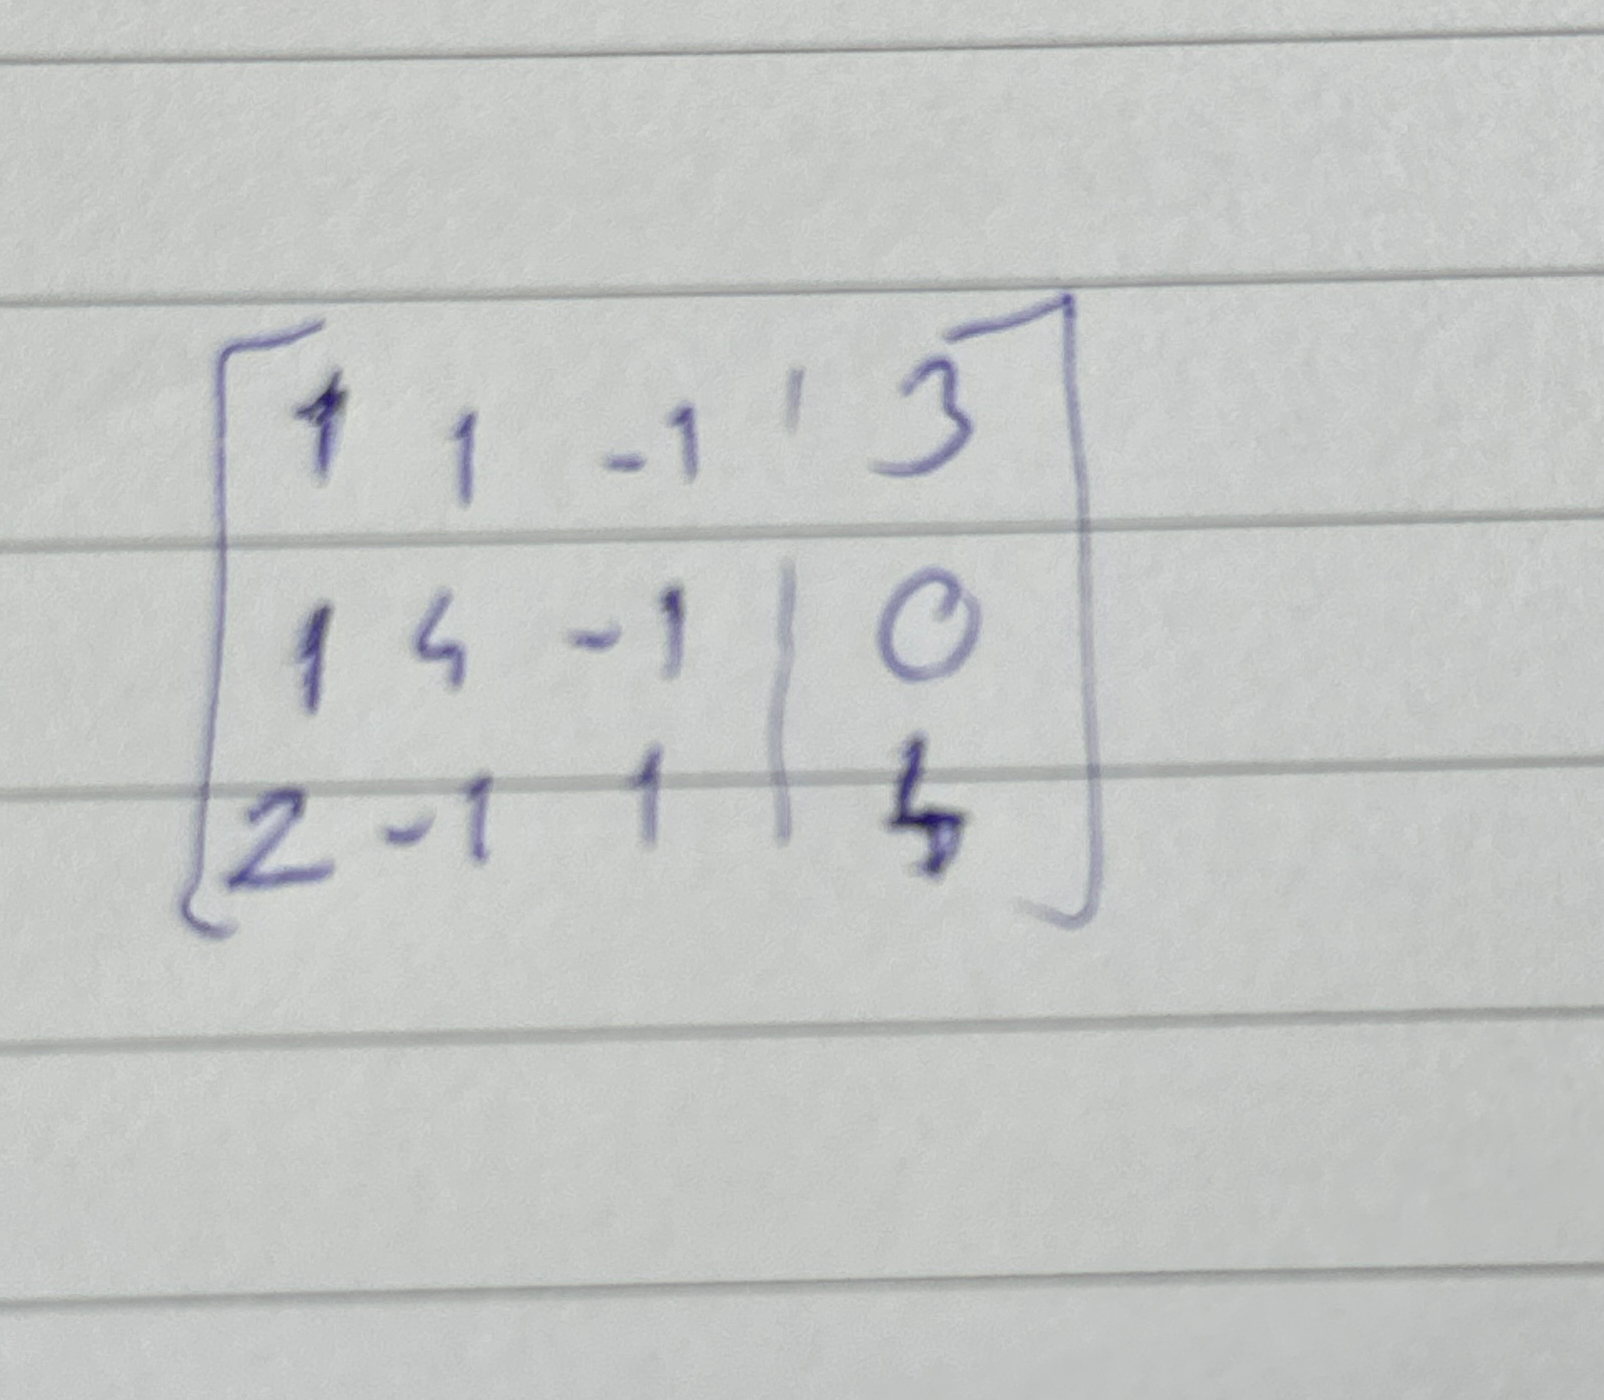 1 1 -1 | 3
1 4 -1 | 0
2 -1 1 | 4